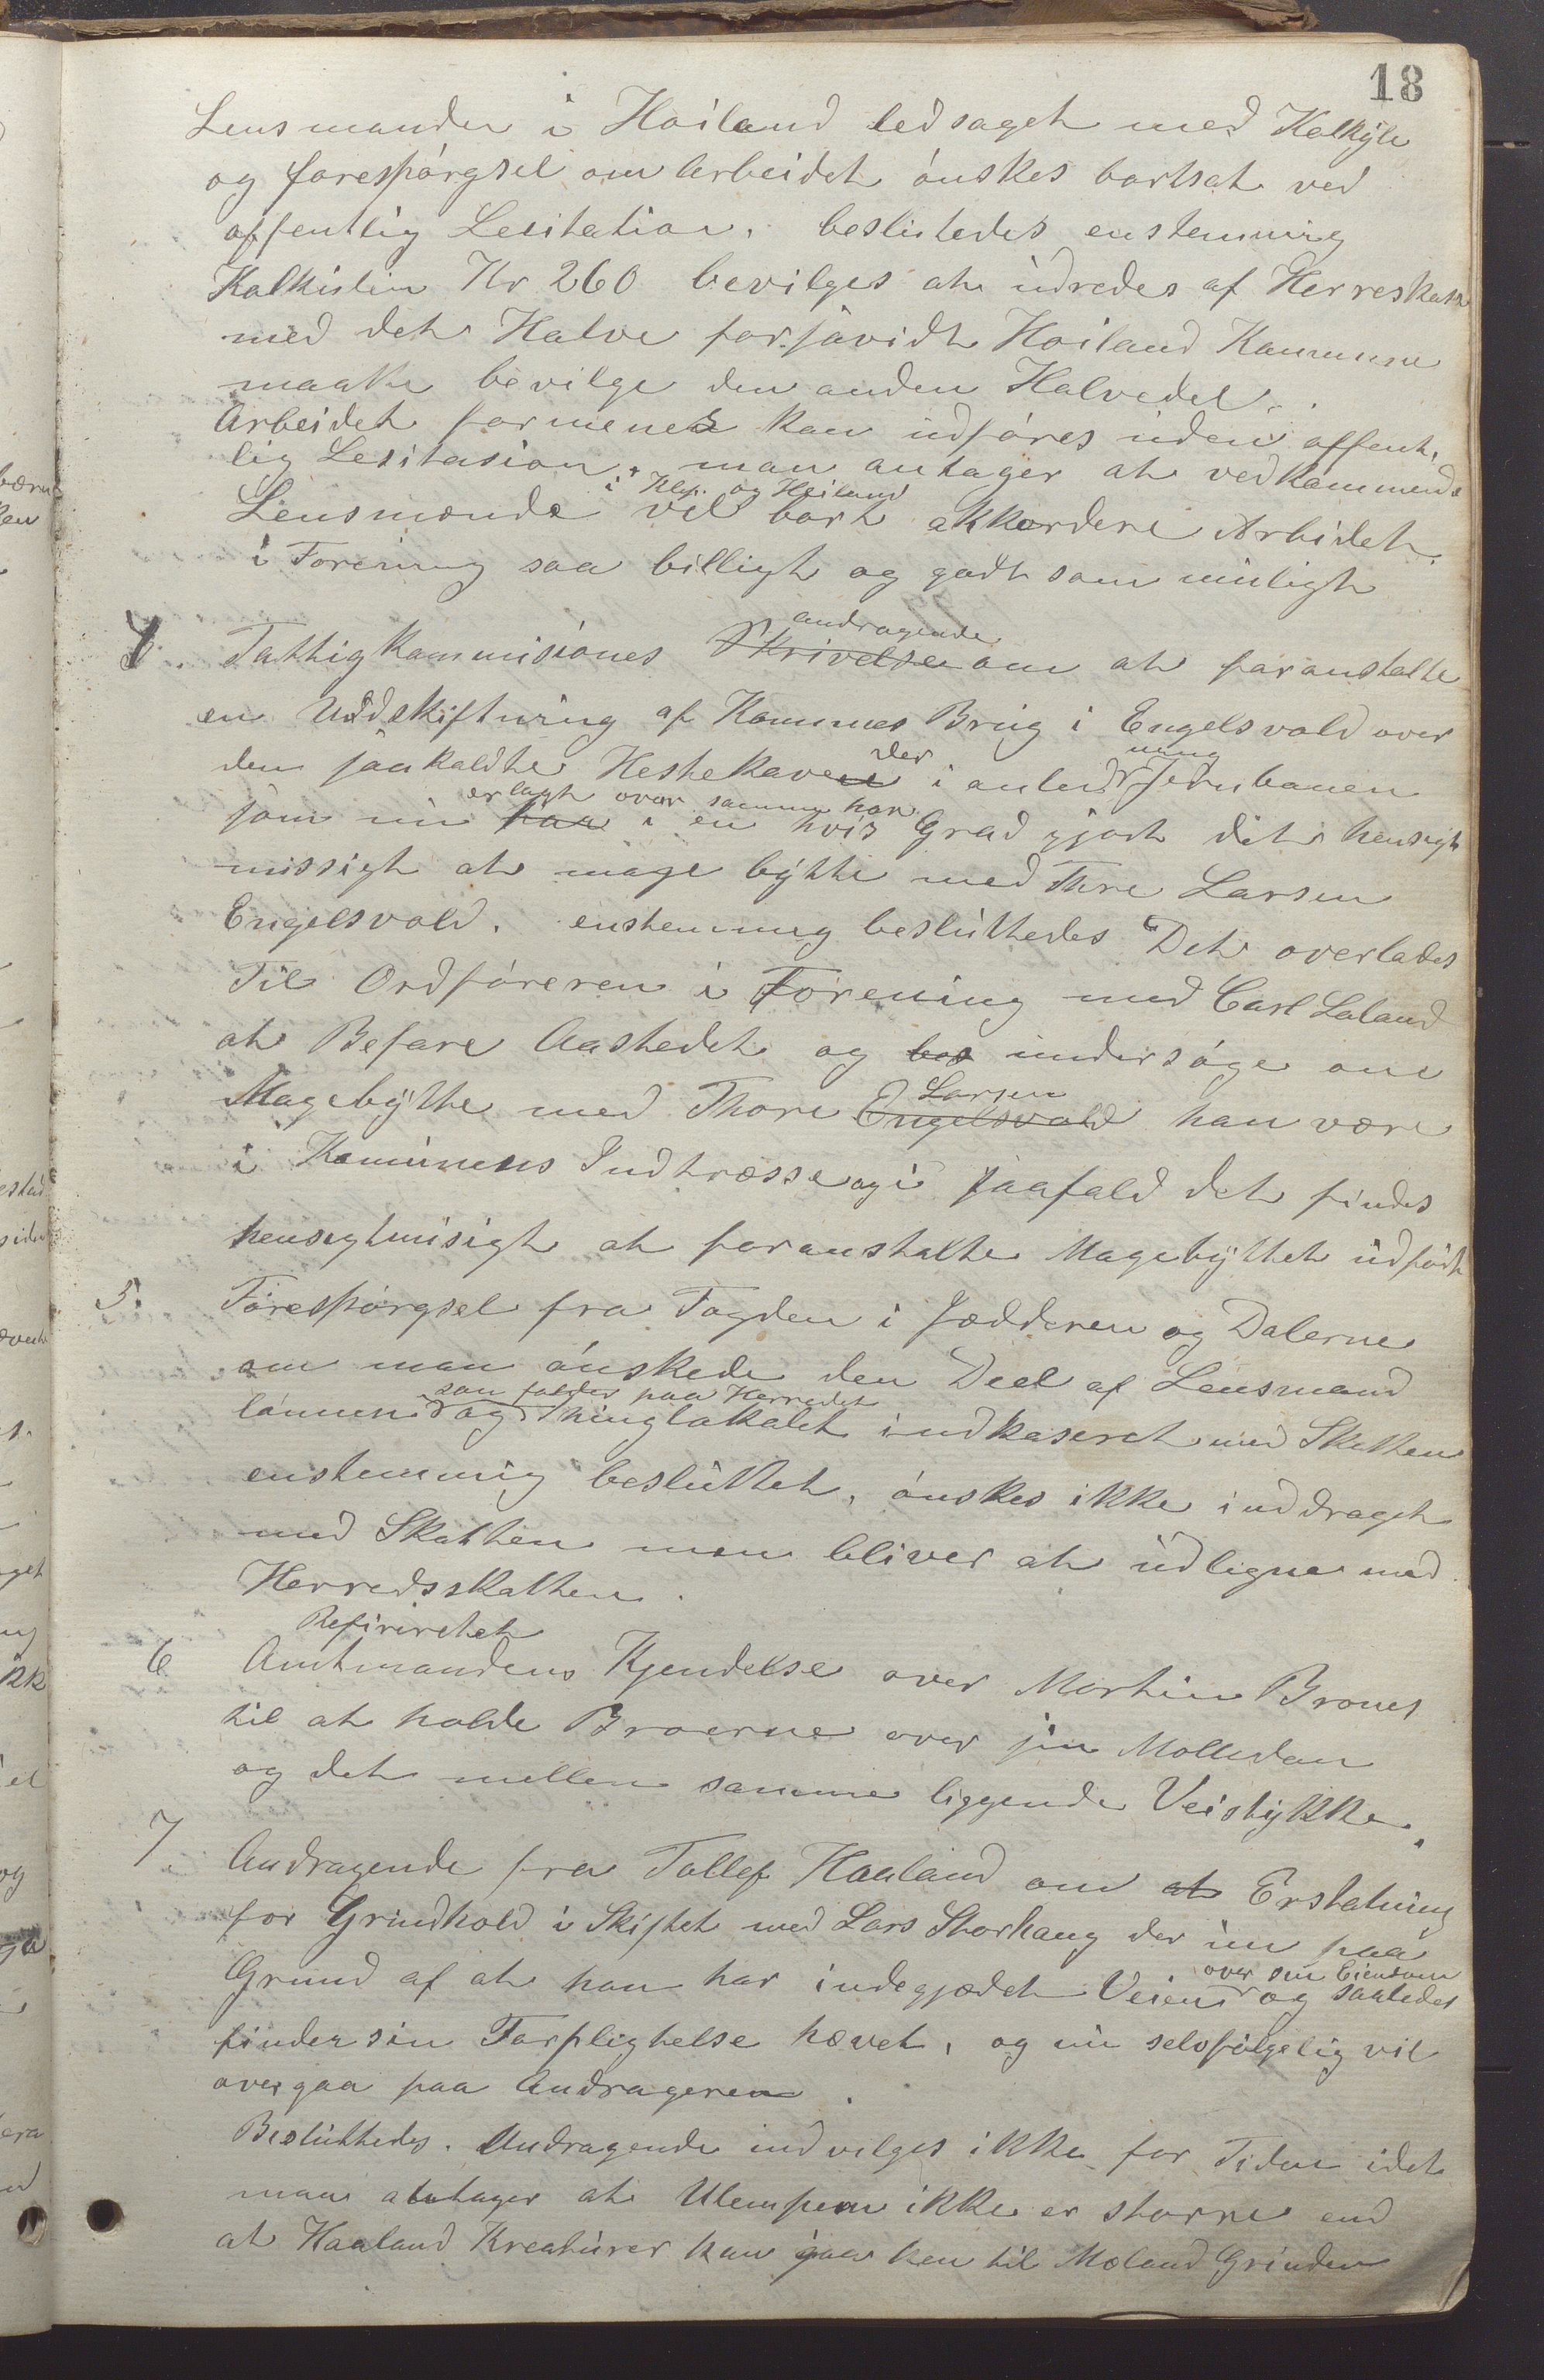 18
Lensmanden i Høiland ledsaget med Kalkyle
og forespørgsel om Arbeidet ønskes bortsat ved
offentlig Lesitation. besluttedes enstemmig
Kalkislen Kr 260 bevilges at udredes af Herreskass
med det Halve forsavidt Høiland Kommune
maatte bevilge den anden Halvedel.
Arbeidet formenes kan udføres uden offent,
lig Lesitasion. man antager at vedkommende
i Klp. og Høiland
Lensmænde vil bort akkordere Arbidet
i Forening saa billigt og godt som muligt
4. Fattigkommisiones Skrivelse om at foranstalte
andragende
en Uddskiftning af Kommes Brug i Engelsvold over
den saakaldte Hestehave der i anledning Jernbanen
erlagt over samme har
som nu har i en hvis Grad gjort det hensigt
missigt at mage bytte med Thore Larsen
Engelsvold. enstemmig besluttedes Det overlades
Til Ordføreren i Forening med Carl Laland
at Befare Aastedet og bes undersøge om
Magebytte med Thore Engelsvold kan være
Larsen
i Komunens Indtræsse og i saafald det findes
hensigtmisigt at foranstalte Magebyttet udført
5. Forespørgsel fra Fogden i Jædderen og Dalerne
om man ønskede den Deel af Lensmand
som falder paa Herredet
lønnen og Thinglokalet indkaseret med Skatten
enstemmig besluttet, ønskes ikke inddraget
med Skatten men bliver at udligne med
Herredsskatten.
Refireretet
6 Amtmandens Kjendelse over Morten Brones
til at holde Broerne over sin Mølledam
og det mellem samme liggende Veistykke.
7 Andragende fra Tollef Haaland om at Erstatning
for Grindhold i Skiftet med Lars Storhaug der nu paa
Grund af at han har indegjædet Veien og saaledes
over sin Eiendom
finder sin Forpligtelse hævet, og nu selvfølgelig vil
overgaa paa Andrageren.
Besluttedes. Andragende indvilges ikke for Tiden idet
man antager at Ulempen ikke er større end
at Haaland Kreaturer kan gaa hen til Moland Grinden